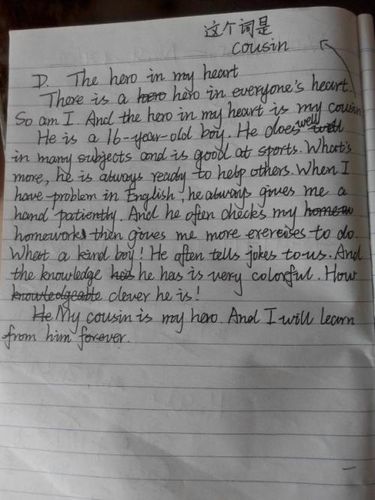 这个词是
cousin
D. The hero in my heart
There is a hero hero in everyone's heart.
So am I. And the hero in my heart is my cousin
He is a 16-year-old boy. He does well well
in many subjects and is good at sports. What's
more, he is always ready to help others. When I
have problem in English, he always gives me a
hand patiently. And he often checks my homew
homework then gives me more exercises to do.
What a kind boy! He often tells jokes to us. And
the knowledge has he has is very colorful. How
knowledgeable clever he is!
He My cousin is my hero. And I will learn
from him forever.